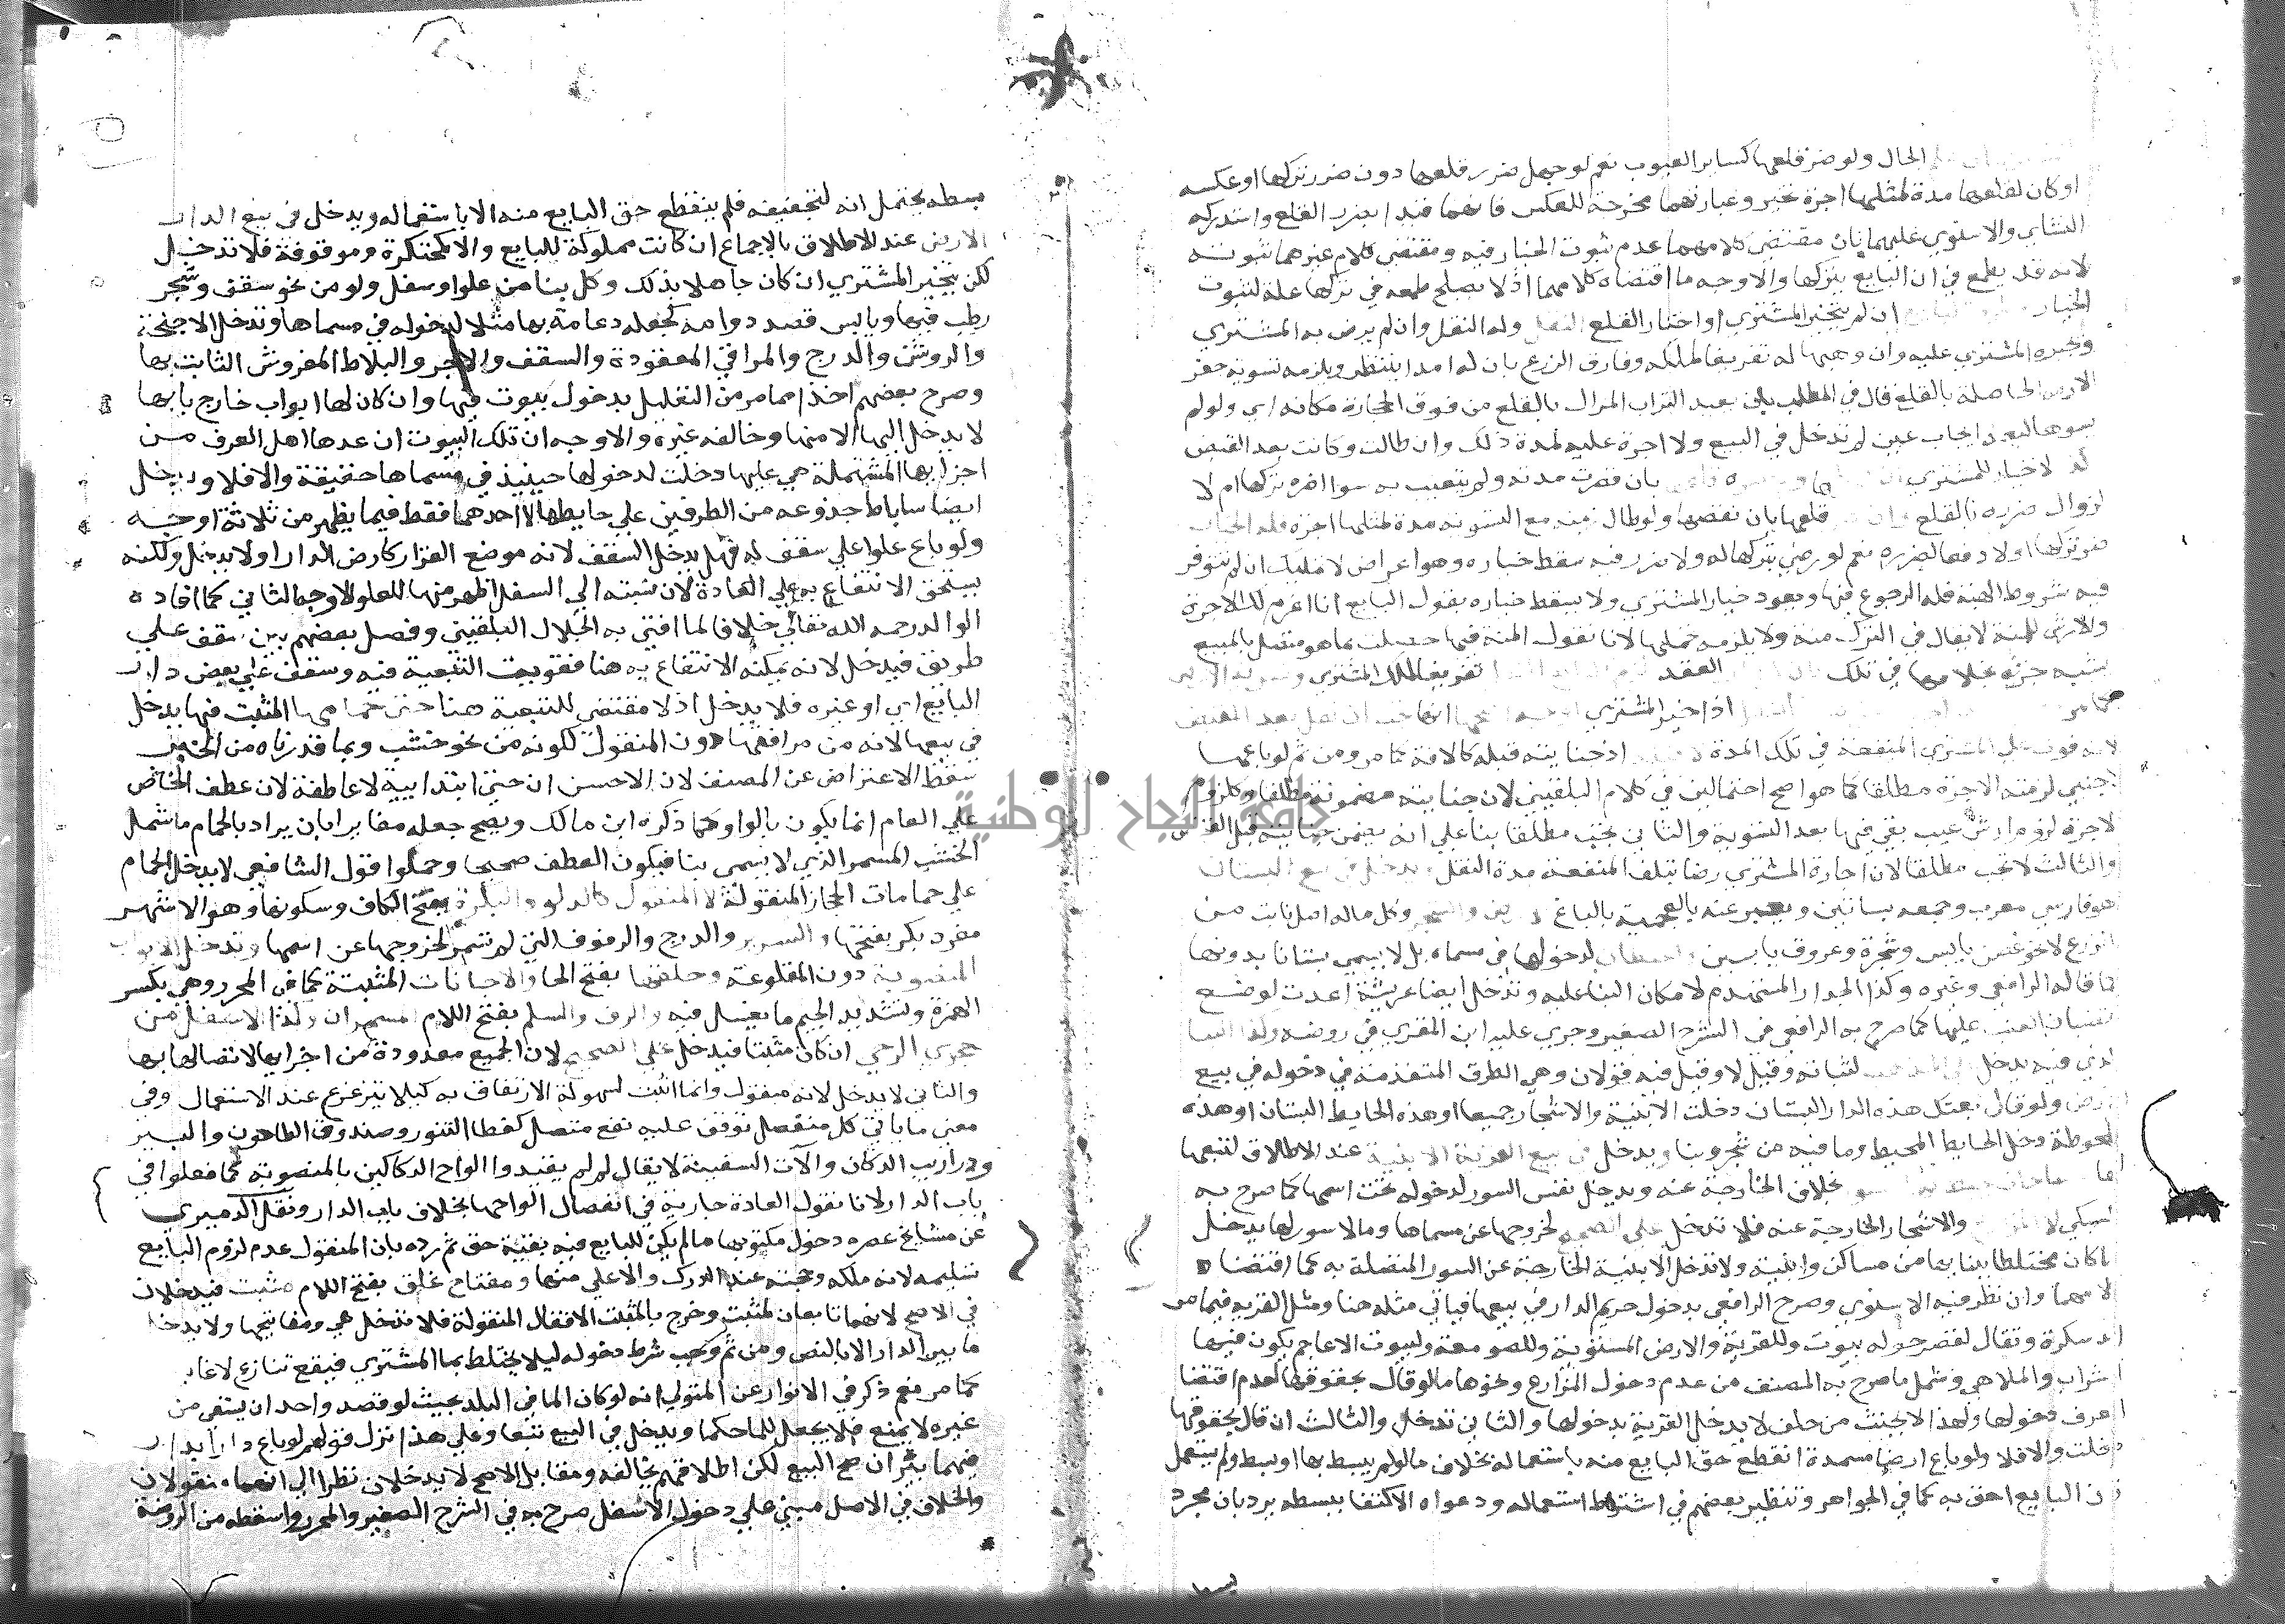 الحال ولو ضر قلعها كساير العيوب نعم لو جهل ضرر قلعها دون ضرر تركها او عكسه
او كان لقلعها مدة لمثلها اجرة تخير وعبارتهما مخرجة للعكس فانهما قيدا بضرر القلع واستدركه
النشاي والاسنوي عليهما بان مقتضى كلامهما عدم ثبوت الخيار فيه ومقتضى كلام غيرهما ثبوته
لانه قد يطمع في ان البايع يتركها والاوجه ما اقتضاه كلامهما اذ لا يصلح طمعه في تركها علة لثبوت
الخيار ان لم يتخير المشتري او اختار القلع النقل وله النقل وان لم يرض به المشتري
وتجبره المشتري عليه وان وهبها له تفريغا لملكه وفارق الزرع بان له امدا ينتظر ويلزمه تسوية حفر
الارض الحاصلة بالقلع قال في المطلب بان يعيد التراب المزال بالقلع من فوق الحجارة مكانه اي ولو لم
يسوها لبعد ايجاب عين لم تدخل في البيع ولا اجرة عليه لمدة ذلك وان طالت وكانت بعد القبض
لا خيار للمشتري بان قصرت مدته ولم تتعيب به سوا اضره تركها ام لا
لزوال ضرره بالقلع قلعها بان نقصها ولو طال زمنه مع التسوية مدة لمثلها اجرة فله الخيار
ضر تركها اولا دفعا لضرره نعم لو رضي بتركها له ولا ضرر فيه سقط خياره وهو اعراض لا تمليك ان لم تتوفر
فيه شروط الهبة فله الرجوع فيها ويعود خيار المشتري ولا يسقط خياره بقول البايع انا اغرم لك الاجرة
والارش للمنة لا يقال في الترك منة ولا يلزمه تحملها لانا نقول المنة فيها حصلت بما هو متصل بالمبيع
يشبه جزءه بخلافها في تلك العقد تفريغا لملك المشتري
اذا خير المشتري ان نقل بعد القبض
لانه فوت على المشتري المنفعة في تلك المدة اذ جنايته قبله كالافة كما مر ومن ثم لو باعها
لاجنبي لزمته الاجرة مطلقا كما هو اصح احتمالين في كلام البلقيني لان جنايته مضمونة مطلقا وكلزوم
الاجرة لزوم ارش عيب بقي فيها بعد التسوية والثاني تجب مطلقا بنا على انه يضمن جنايته قبل القبض
والثالث لا تجب مطلقا لان اجازة المشتري رضا بتلف المنفعة مدة النقل يدخل في بيع البستان
هو فارسي معرب وجمعه بساتين ويعبر عنه بالعجمية بالباغ وكل ما له اصل ثابت من
الزرع لا نحو غصن يابس وشجرة وعروق يابسين لدخولها في مسماه بل لا يسمى بستانا بدونها
كما قاله الرافعي وغيره وكذا الجدار المستهدم لامكان البنا عليه وتدخل ايضا عريشة اعدت لوضع
قضبان العنب عليها كما صرح به الرافعي في الشرح الصغير وجرى عليه ابن المقري في روضه وكذا البنا
الذي فيه يدخل لثباته وقيل لا وقيل فيه قولان وهي الطرق المتقدمة في دخوله في بيع
الارض ولو قال بعتك هذه الدار البستان دخلت الابنية والاشجار جميعا او هذه الحايط البستان او هذه
المحوطة دخل الحايط المحيط وما فيه من شجر وبنا ويدخل في بيع القرية الابنية عند الاطلاق لتبعها
لها بخلاف الخارجة عنه ويدخل نفس السور لدخوله تحت اسمها كما صرح به
السبكي والاشجار الخارجة عنه فلا تدخل على الصحيح لخروجها عن مسماها وما لا سور لها يدخل
ما كان مختلطا ببنايها من مساكن وابنية ولا تدخل الابنية الخارجة عن السور المتصلة به كما اقتضاه
كلامهما وان نظر فيه الاسنوي وصرح الرافعي بدخول حريم الدار في بيعها فياتي مثله هنا ومثل القرية فيما مر
الدسكرة وتقال لقصر حوله بيوت وللقرية والارض المستوية وللصومعة ولبيوت الاعاجم يكون فيها
الشراب والملاهي وشمل ما صرح به المصنف من عدم دخول المزارع ونحوها ما لو قال بحقوقها لعدم اقتضا
العرف دخولها ولهذا لا يحنث من حلف لا يدخل القرية بدخولها والثاني تدخل والثالث ان قال بحقوقها
دخلت والا فلا ولو باع ارضا مسمدة انقطع حق البايع منه باستعماله بخلاف ما لو لم يبسط بها او بسط ولم يستعمل
فان البايع احق به كما في الجواهر وتنظير بعضهم في اشتراط استعماله ودعواه الاكتفا ببسطه يرد بان مجرد
بسطه
بسطه يحتمل انه لتجفيفه فلم ينقطع حق البايع منه الا باستعماله ويدخل في بيع الدار
الارض عند الاطلاق بالاجماع ان كانت مملوكة للبايع والا كمحتكرة وموقوفة فلا تدخل
لكن يتخير المشتري ان كان جاهلا بذلك وكل بنا من علو او سفل ولو من نحو سقف وشجر
رطب فيها ويابس قصد دوامه كجعله دعامة بها مثلا لدخوله في مسماها وتدخل الاجنحة
والروشن والدرج والمراقي المعقودة والسقف والاجر والبلاط المفروش الثابت بها
وصرح بعضهم اخذا مما مر من التعليل بدخول بيوت فيها وان كان لها ابواب خارج بابها
لا يدخل اليها الا منها وخالفه غيره والاوجه ان تلك البيوت ان عدها اهل العرف من
اجزايها المشتملة هي عليها دخلت لدخولها حينيذ في مسماها حقيقة والا فلا ويدخل
ايضا ساباط جذوعه من الطرفين على حايطها لا احدهما فقط فيما يظهر من ثلاثة اوجه
ولو باع علوا على سقف له فهل يدخل السقف لانه موضع القرار كارض الدار او لا يدخل ولكنه
يستحق الانتفاع به على العادة لان نسبته الى السفل اظهر منها للعلو الاوجه الثاني كما افاده
الوالد رحمه الله تعالى خلافا لما افتى به الجلال البلقيني وفصل بعضهم بين سقف على
طريق فيدخل لانه يمكنه الانتفاع به هنا فقويت التبعية فيه وسقف على بعض دار
البايع اي او غيره فلا يدخل اذ لا مقتضى للتبعية هنا حتى حمامها المثبت فيها يدخل
في بيعها لانه من مرافقها دون المنقول لكونه من نحو خشب وبما قدرناه من الخبر
سقط الاعتراض عن المصنف لان الاحسن ان حتى ابتدايية لا عاطفة لان عطف الخاص
على العام انما يكون بالواو كما ذكره ابن مالك ويصح جعله مغايرا بان يراد بالحمام ما شمل
الخشب المسمر الذي لا يسمى بنا فيكون العطف صحيحا وحملوا قول الشافعي لا يدخل الحمام
على حمامات الحجاز المنقولة لا المنقول كالدلو والبكرة بفتح الكاف وسكونها وهو الاشهر
مفرد بكر بفتحها والسرير والدرج والرفوف التي لم تسمر لخروجها عن اسمها وتدخل الابواب
المنصوبة دون المقلوعة وحلقها بفتح الحا والاجانات المثبتة كما في المحرر وهي بكسر
الهمزة وتشديد الجيم ما يغسل فيه والرف والسلم بفتح اللام المسمران وكذا الاسفل من
حجري الرحى ان كان مثبتا فيدخل على الصحيح لان الجميع معدودة من اجزايها لاتصالها بها
والثاني لا يدخل لانه منقول وانما اثبت لسهولة الارتفاق به كيلا يتزعزع عند الاستعمال وفي
معنى ما ياتي كل منفصل توقف عليه نفع متصل كغطا التنور وصندوق الطاحون والبير
ودراريب الدكان والات السفينة لا يقال لم لم يقيدوا الواح الدكاكين بالمنصوبة كما فعلوا في
باب الدار لانا نقول العادة جارية في انفصال الواحها بخلاف باب الدار ونقل الدميري
عن مشايخ عصره دخول مكتوبها ما لم يكن للبايع فيه بقية حق ثم رده بان المنقول عدم لزوم البايع
تسليمه لانه ملكه وحجته عند الدرك والاعلى منهما ومفتاح غلق بفتح اللام مثبت فيدخلان
في الاصح لانهما تابعان لمثبت وخرج بالمثبت الاقفال المنقولة فلا تدخل هي ومفاتيحها ولا يدخل
ما بير الدار الا بالنص ومن ثم وجب شرط دخوله ليلا يختلط بما المشتري فيقع تنازع لا غاية
كما مر نعم ذكر في الانوار عن المتولي انه لو كان الما في البلد بحيث لو قصد واحد ان يستقي من
غيره لا يمنع فلا يجعل للما حكما ويدخل في البيع تبعا وعلى هذا تنزل قولهم لو باع دارا بدار
فيهما بئر ان صح البيع لكن اطلاقهم يخالفه ومقابل الاصح لا يدخلان نظرا الى انهما منقولان
والخلاف في الاصل مبني على دخول الاسفل صرح به في الشرح الصغير والمحرر واسقطه من الروضة
جامعة النجاح الوطنية